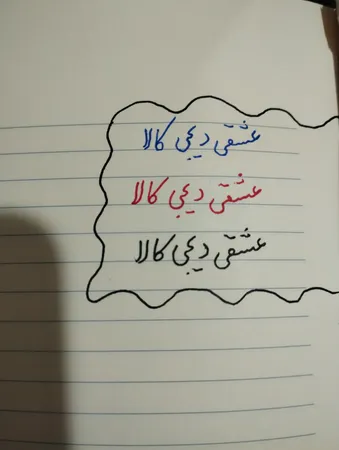 عشقی دیجی کالا
عشقی دیجی کالا
عشقی دیجی کالا